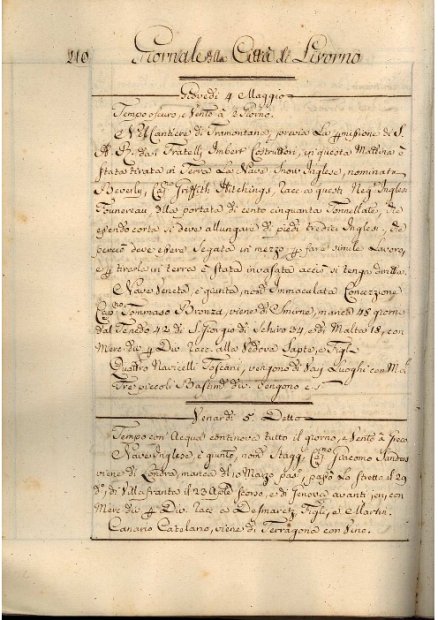 210 Giornale della Città di Livorno
Giovedi 4 Maggio
Tempo oscuro, e Vento à Giorno.
Nel Cantiere di Tramontana, previa La pmissione de S.
A. R. da Fratelli Imbert Costruttori, in questa Mattina è
stata tirata in Terra La Nave Snow Inglese, nominata
Beverly, Cap. Griffith Hitchings, Racc. a questi Neg. Inglesi
della portata di cento cinquanta Tonnellate, che
essendo corta si deve allungare di piedi tredici Inglesi, che
perciò deve essere Segata in mezzo p fare simile Lavoro,
e p tirarla in terra è stata invasata acciò si tenga diritta.
Nave Veneta è giunta, nom. Immacolata Concezzione
Cap.no Tommaso Bronza, viene di Smirne, manca 48 giorni
dal Tenedo 42 di S. Giorgio di Schiro 34, e di Malta 18, con
Merc. div. p Div. Racc. alla Vedova Sapte, e Figli
Quattro Navicelli Toscani, vengono di Varj Luoghi con
Tre piccoli Bastim. div. vengono e s
Venardi 5 Detto
Tempo con Acqua continova tutto il giorno, e Vento à
Nave Inglese è giunto, nom. Stagg, Cap.no Giacomo Sandes
viene di Londra, manca di 10 Marzo pas. passò Lo Stretto il 29
d.o, di Villafranta il 23 Aprile scorso, e di Genova avanti jeri, con
Merc. div. p Div. Racc. a Desmaretz, Figli, e Martin.
Canario Catolano, viene di Terragona con Vino.